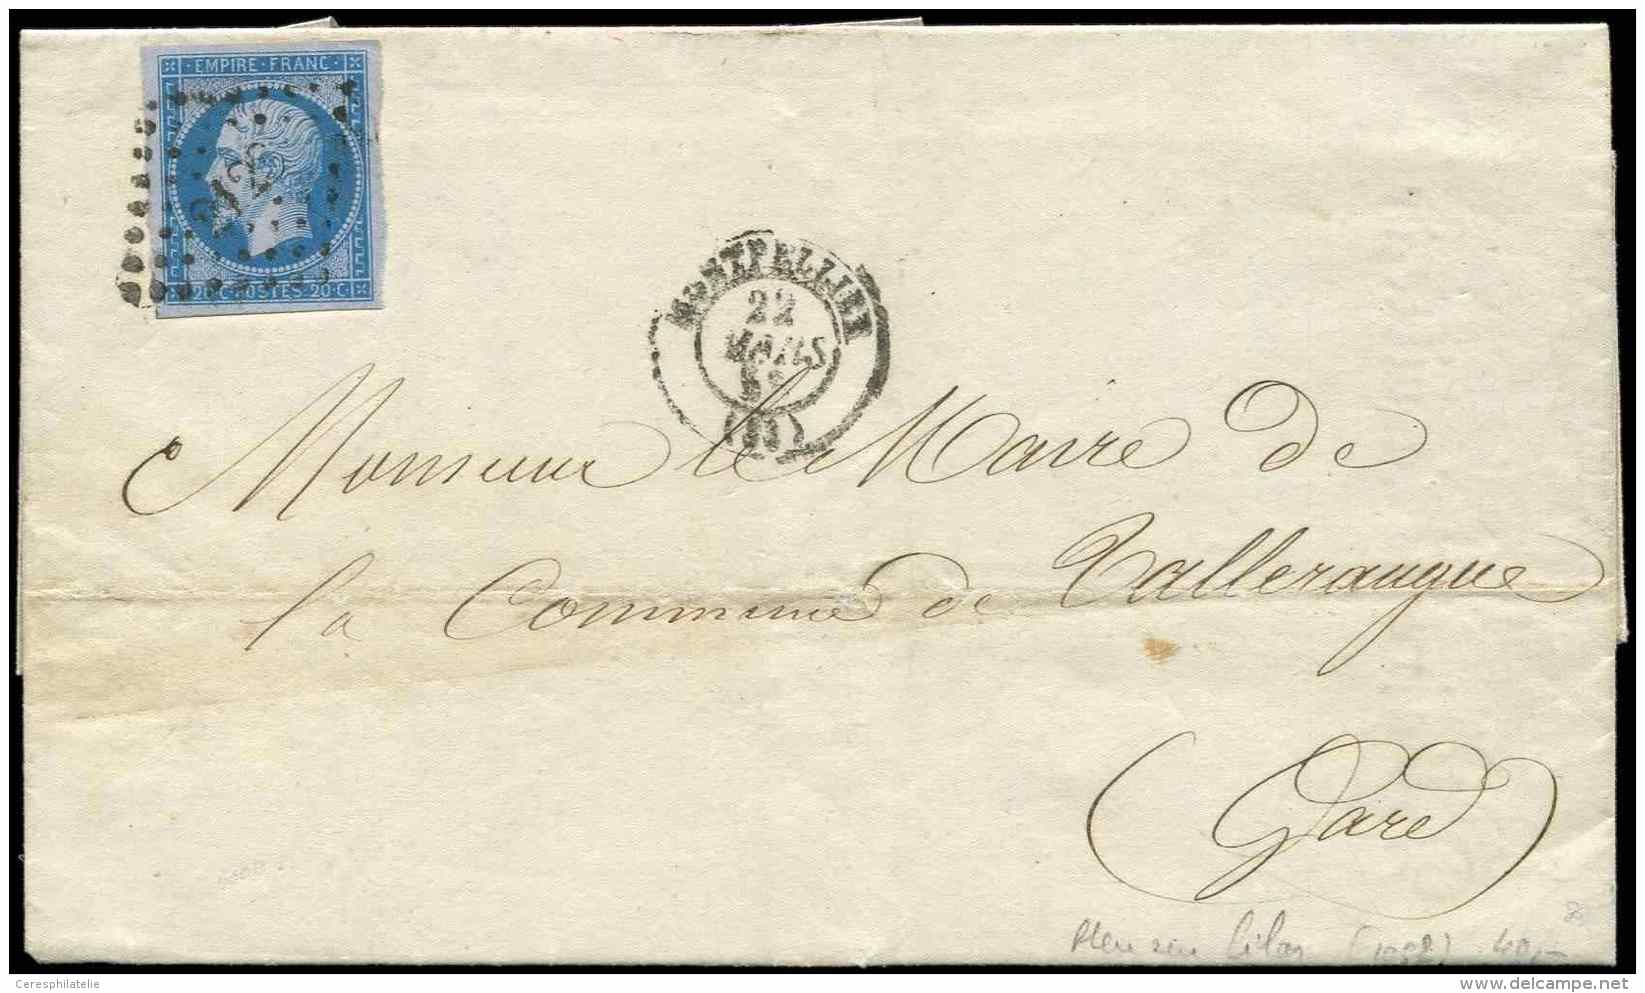 EMPIRE FRANC
2126
20 C POSTES 20 C
MONTPELLIER
22
MARS
(33)
Monsieur le Maire de
la Commune de Valleraugue
Gard
Bleu sur lilas 40,-
Ceresphilatelie
www.delcampe.net